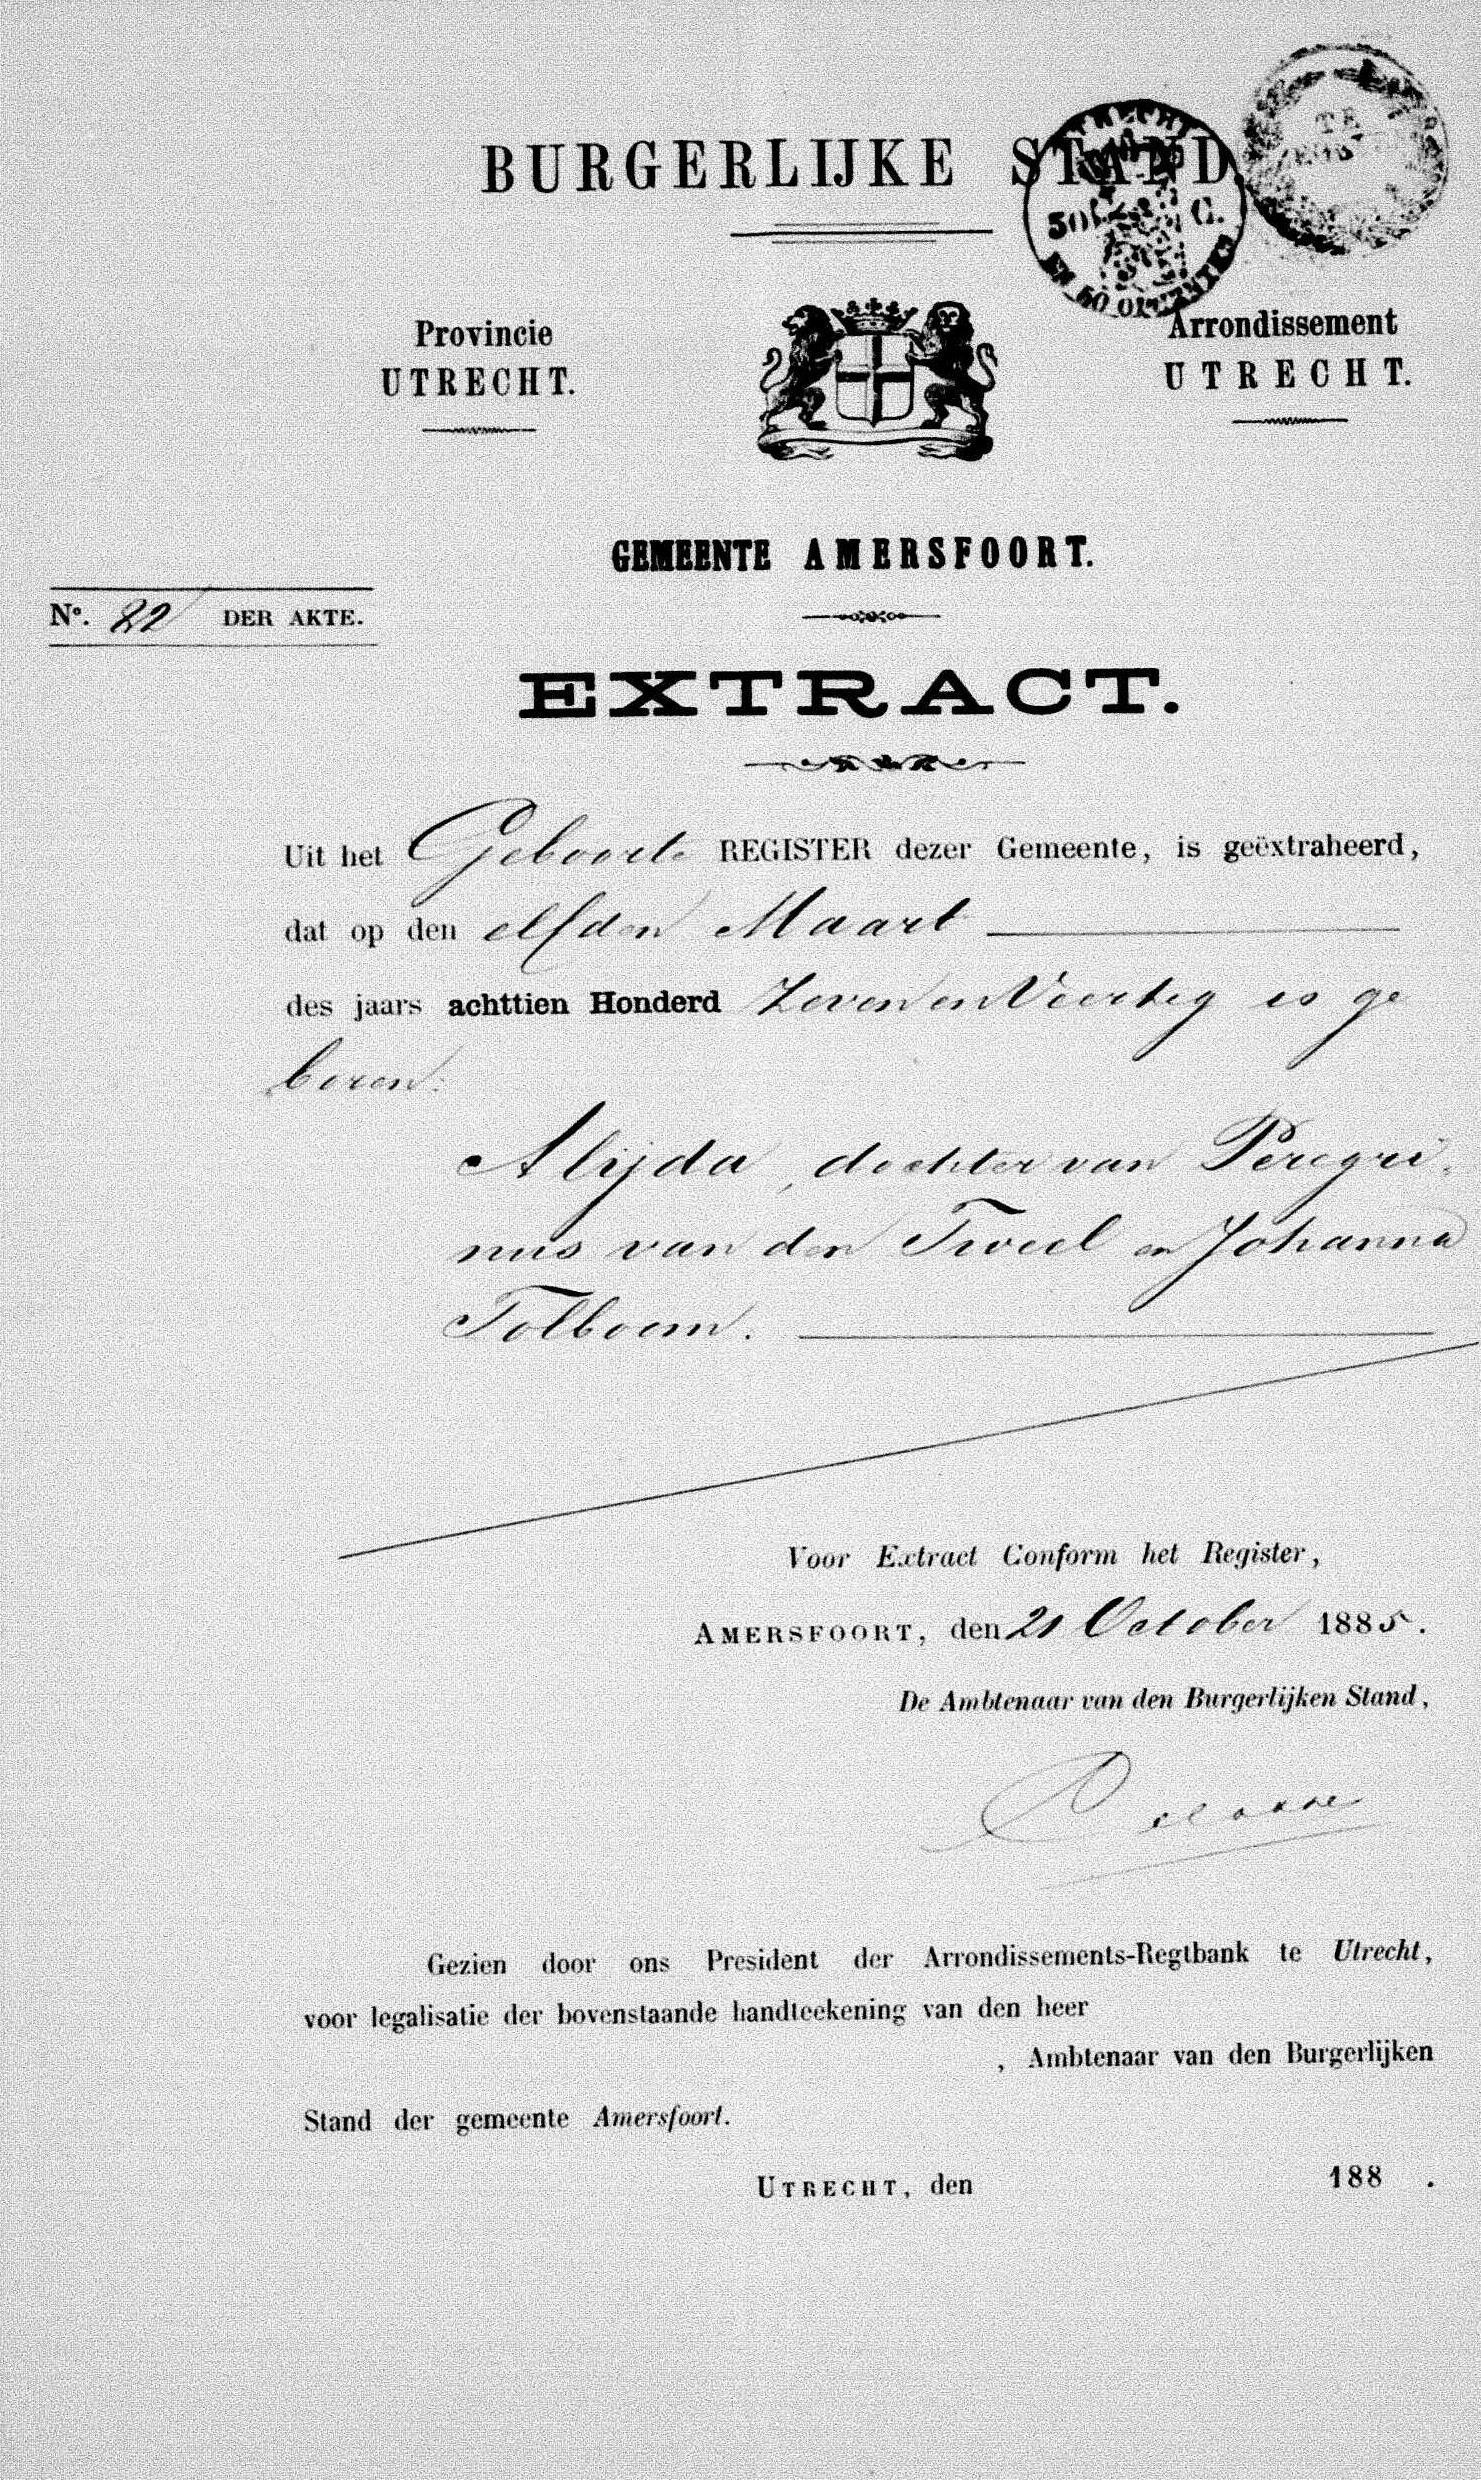 BURGERLIJKE STAND.
UTRECHT
50 C.
EN 50 OPCENTEN
TE
Provincie
UTRECHT.
Arrondissement
UTRECHT.
GEMEENTE AMERSFOORT.
No. 22 DER AKTE.
EXTRACT.
Uit het Geboorte REGISTER dezer Gemeente, is geëxtraheerd,
dat op den elfden Maart
des jaars achttien Honderd Zeven en Veertig is ge
boren:
Alijda, dochter van Peregri-
nus van den Tweel en Johanna
Tolboom.
Voor Extract Conform het Register,
AMERSFOORT, den 21 October 1885.
De Ambtenaar van den Burgerlijken Stand,
Gezien door ons President der Arrondissements-Regtbank te Utrecht,
voor legalisatie der bovenstaande handteekening van den heer
, Ambtenaar van den Burgerlijken
Stand der gemeente Amersfoort.
UTRECHT, den 188 .